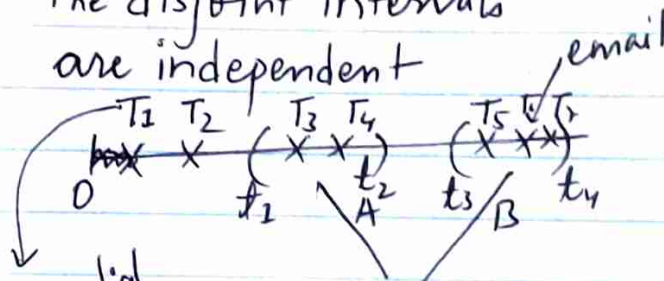 The disjoint intervals
are independent
email
T1 T2 T3 T4 T5
0 t1 t2 t3 t4
A B